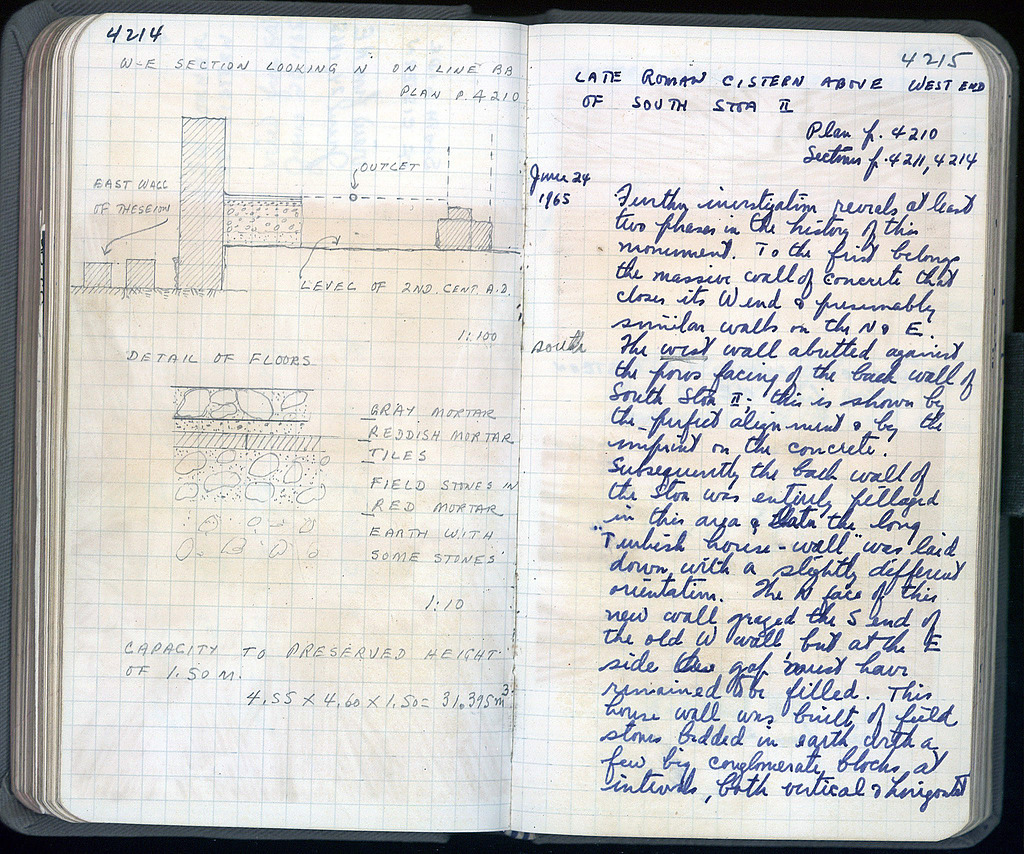 4214
W-E SECTION LOOKING N ON LINE BB
PLAN P. 4210
OUTLET
EAST WALL
OF THESEION
LEVEL OF 2ND. CENT. A.D.
1:100
DETAIL OF FLOORS
GRAY MORTAR
REDDISH MORTAR
TILES
FIELD STONES IN
RED MORTAR
EARTH WITH
SOME STONES
1:10
CAPACITY TO PRESERVED HEIGHT
OF 1.50 M.
4.55 X 4.60 X 1.50 = 31.395 m³
4215
LATE ROMAN CISTERN ABOVE WEST END
OF SOUTH STOA II
Plan p. 4210
Sections p. 4211, 4214
June 24
1965
Further investigation reveals at least
two phases in the history of this
monument. To the first belongs
the massive wall of concrete that
closes its W end & presumably
similar walls on the N & E.
south
The west wall abutted against
the poros facing of the back wall of
South Stoa II; this is shown by
the perfect alignment & by the
imprint on the concrete.
Subsequently the back wall of
the Stoa was entirely pillaged
in this area & the long
"Turkish house-wall" was laid
down with a slightly different
orientation. The N face of this
new wall grazed the S end of
the old W wall, but at the E
side gap must have
remained to be filled. This
house wall was built of field
stones bedded in earth with a
few big conglomerate blocks at
intervals, both vertical & horizontal